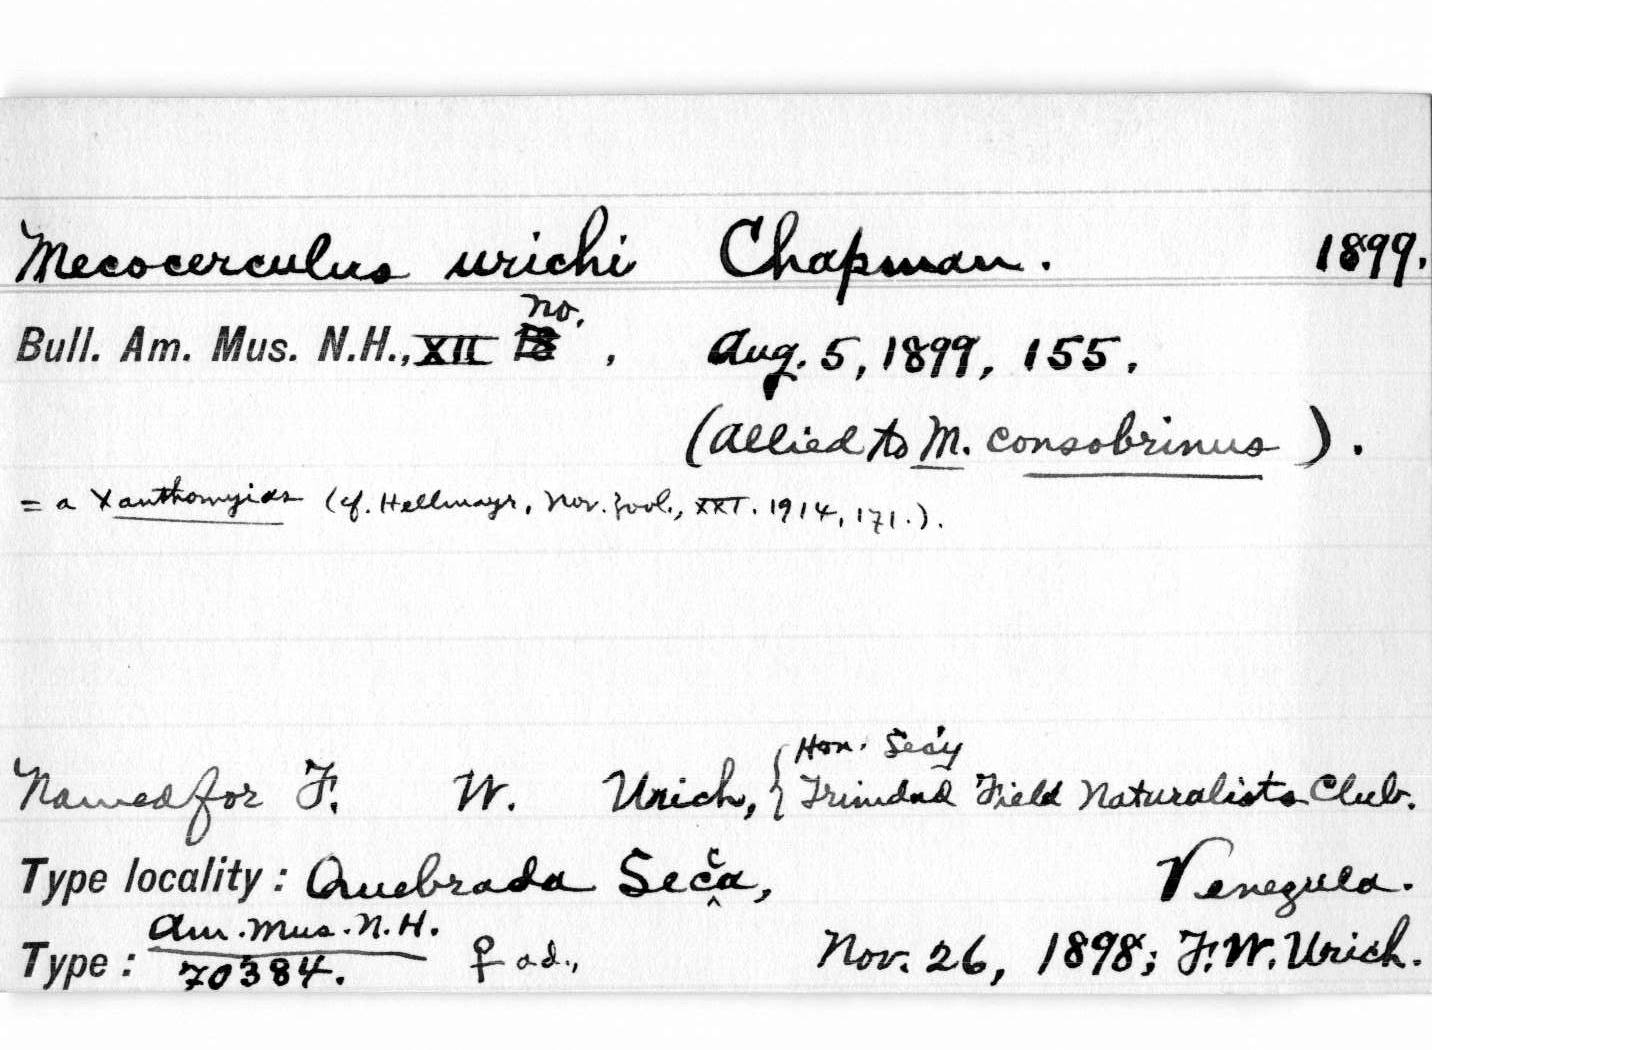 Mecocerculus urichi Chapman. 1899.
Bull. Am. Mus. N.H., XII no. 18, Aug. 5, 1899, 155.
(Allied to M. consobrinus).
= a Xanthomyias (cf. Hellmayr, Nov. Zool., XXI. 1914, 171.).
Hon. Sec'y
Named for F. W. Urich, { Trinidad Field Naturalists Club.
Type locality: Quebrada Secca, Venezuela.
Am. Mus. N.H.
Type: 70384. ♀ ad., Nov. 26, 1898; F. W. Urich.